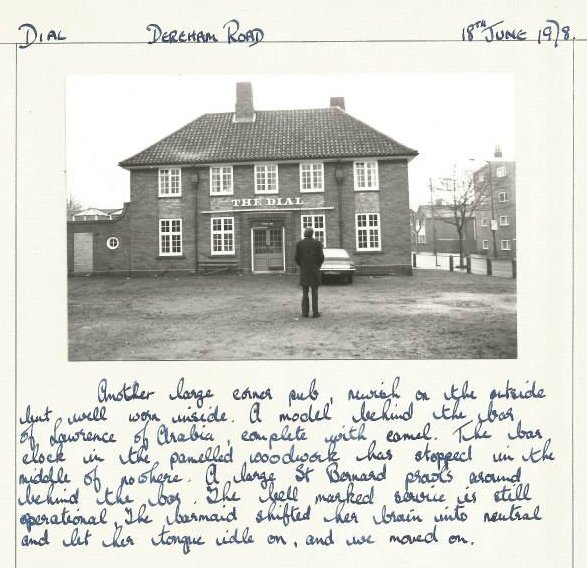 DIAL DEREHAM ROAD 18TH JUNE 1978.
THE DIAL
Another large corner pub, newish on the outside
but well worn inside. A model behind the bar
of Lawrence of Arabia, complete with camel. The bar
clock in the panelled woodwork has stopped in the
middle of nowhere. A large St Bernard prowls around
behind the bar. The bell marked service is still
operational. The barmaid shifted her brain into neutral
and let her tongue idle on, and we moved on.